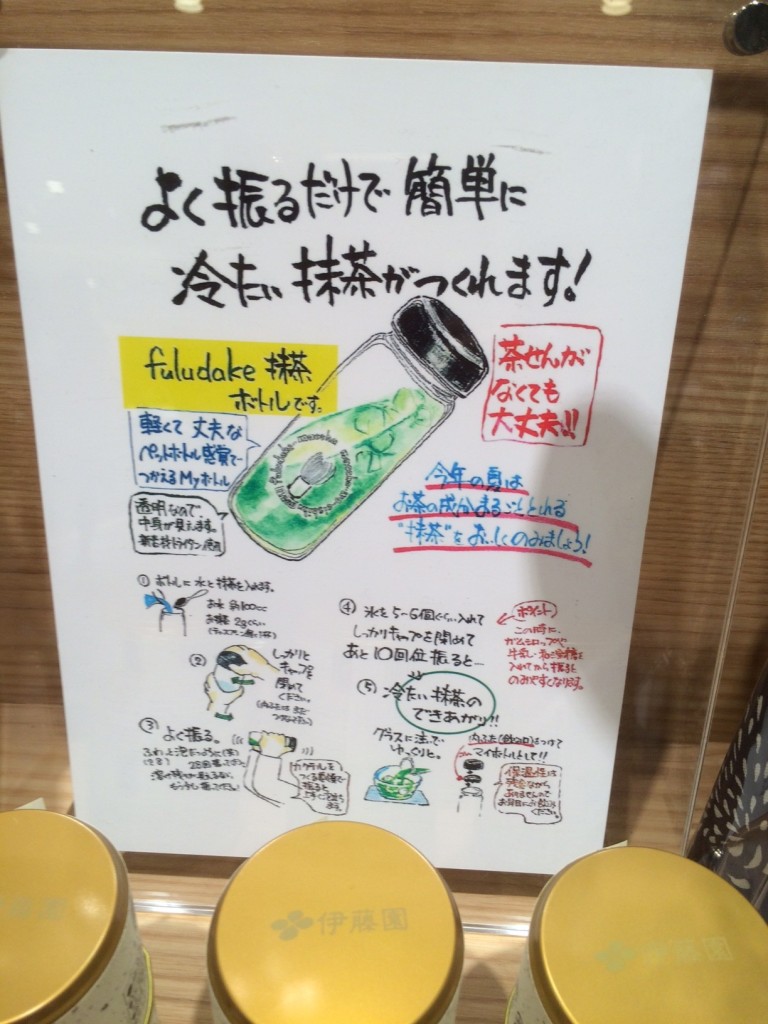 よく振るだけで簡単に
冷たい抹茶がつくれます!
fuludake 抹茶
ボトルです。
茶せんが
なくても
大丈夫!!
軽くて丈夫な
ペットボトル感覚で
つかえるMyボトル
透明なので、
中身が見えます。
今年の夏は
お茶の成分まるごととれる
"抹茶"をおいしくのみましょう!
① ボトルに水と抹茶を入れます。
お水 約100cc
お抹茶 2gくらい
② しっかりと
キャップを
閉めて
ください。
③ よく振る。
④ 氷を5~6個くらい入れて
しっかりキャップを閉めて
あと10回位振ると…
ポイント
この時に、
ガムシロップや
入れてから振ると
のみやすくなります。
⑤ 冷たい抹茶の
できあがり!!
グラスに注いで
ゆっくりと。
内ふた(飲み口)をつけて
マイボトルとして!!
カクテルを
つくる要領で
振ると
保温性は
残念ながら
ください。
伊藤園
伊藤園